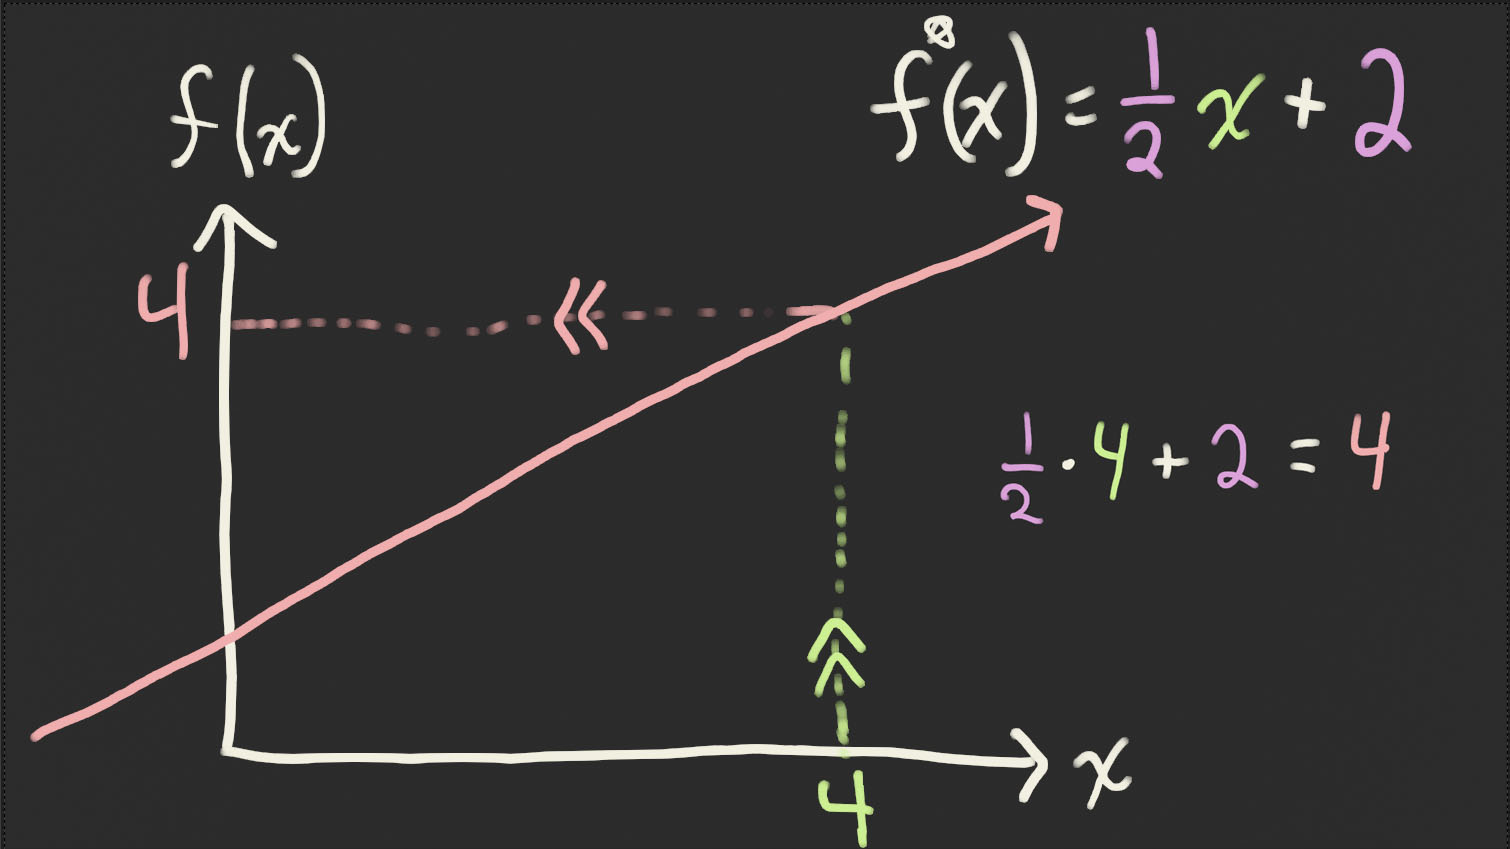 f(x)
f(x) = 1/2 x + 2
4
1/2 · 4 + 2 = 4
x
4